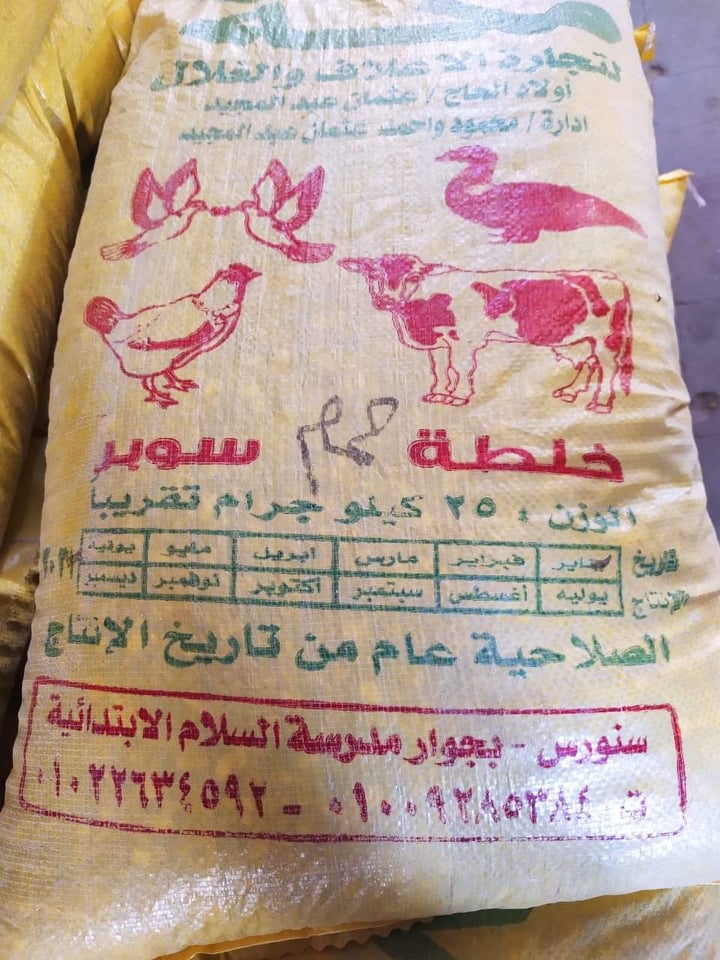 لتجارة الاعلاف والغلال
أولاد الحاج / عثمان عبد المجيد
ادارة / محمود واحمد عثمان عبد المجيد
خلطة حمام سوبر
الوزن : ٢٥ كيلو جرام تقريبا
تاريخ يناير فبراير مارس ابريل مايو يونيه
الإنتاج يوليه أغسطس سبتمبر اكتوبر نوفمبر ديسمبر
الصلاحية عام من تاريخ الإنتاج
سنورس - بجوار مدرسة السلام الابتدائية
ت ٠١٠٠٩٢٨٥٣٨٤ - ٠١٠٢٢٦٣٤٥٩٢